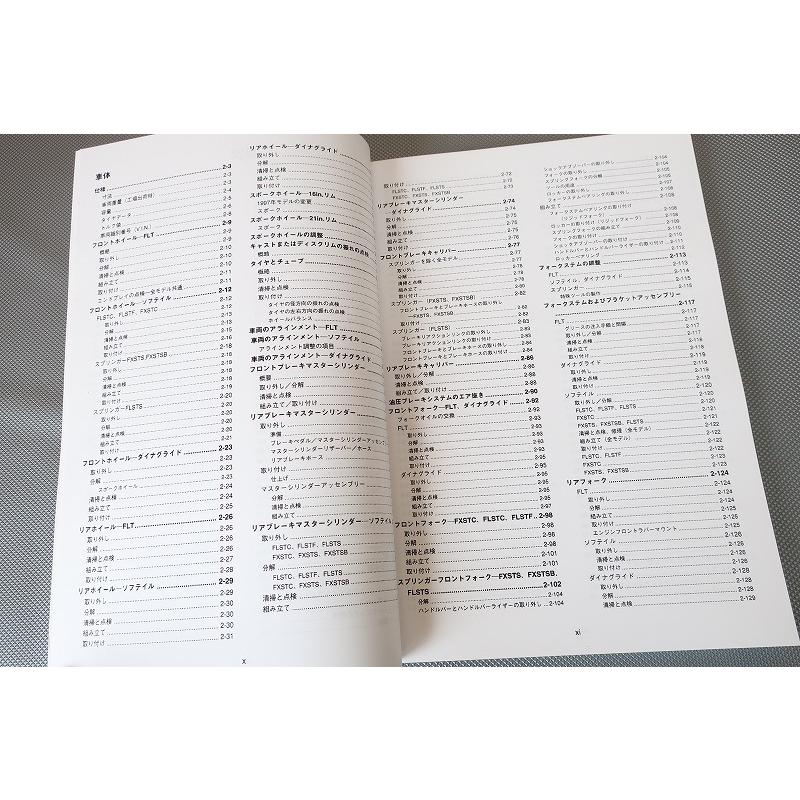 車体
仕様 2-3
寸法 2-3
車両重量（工場出荷時） 2-3
容量 2-3
タイヤデータ
トルク値
車両識別番号（V.I.N.）
フロントホイール—FLT 2-9
概略 2-9
取り外し 2-9
分解 2-10
清掃と点検
組み立て 2-11
取り付け 2-11
エンドプレイの点検—全モデル共通
フロントホイール—ソフテイル 2-12
FLSTC、FLSTF、FXSTC 2-12
取り外し
分解
清掃と点検 2-13
組み立て
取り付け
スプリンガーFXSTS,FXSTSB
取り外し
分解
清掃と点検
組み立て
取り付け
スプリンガーFLSTS
取り外し
分解 2-20
清掃と点検 2-20
組み立て 2-20
取り付け 2-21
フロントホイール—ダイナグライド 2-23
取り外し 2-23
分解 2-23
スポークホイール
清掃と点検 2-24
組み立て 2-25
取り付け 2-25
リアホイール—FLT 2-26
取り外し 2-26
分解 2-26
清掃と点検 2-28
組み立て 2-28
取り付け 2-28
リアホイール—ソフテイル 2-29
取り外し 2-29
分解 2-30
清掃と点検 2-30
組み立て 2-30
取り付け 2-31
リアホイール—ダイナグライド
取り外し
分解
清掃と点検
組み立て
取り付け
スポークホイール—16in.リム
1997年モデルの変更
スポーク
スポークホイール—21in.リム
スポーク
スポークホイールの調整
キャストまたはディスクリムの振れの点検
概略
タイヤとチューブ
概略
取り外し
清掃と点検
取り付け
タイヤの径方向の振れの点検
タイヤの左右方向の振れの点検
ホイールバランス
車両のアラインメント—FLT
車両のアラインメント—ソフテイル
アラインメント調整の項目
車両のアラインメント—ダイナグライド
フロントブレーキマスターシリンダー
概要
取り外し／分解
清掃と点検
組み立て／取り付け
リアブレーキマスターシリンダー
取り外し
準備
ブレーキペダル／マスターシリンダーアッセンブ
マスターシリンダーリザーバー／ホース
リアブレーキホース
取り付け
仕上げ
マスターシリンダーアッセンブリー
分解
清掃と点検
組み立て
リアブレーキマスターシリンダー—ソフテイル
取り外し
FLSTC、FLSTF、FLSTS
FXSTC、FXSTS、FXSTSB
分解
FLSTC、FLSTF、FLSTS
FXSTC、FXSTS、FXSTSB
清掃と点検
組み立て
x
取り付け 2-72
FLSTC、FLSTF、FLSTS 2-72
FXSTC、FXSTS、FXSTSB 2-73
リアブレーキマスターシリンダー
ダイナグライド 2-74
取り外し 2-74
分解 2-75
清掃と点検 2-75
組み立て
取り付け
フロントブレーキキャリパー 2-77
スプリンガーを除く全モデル 2-78
取り外し
分解 2-78
清掃と点検
組み立て
取り付け
スプリンガー（FXSTS、FXSTSB） 2-82
フロントブレーキとブレーキホースの取り外し
—FXSTS、FXSTSB
取り付け
スプリンガー（FLSTS）
ブレーキリアクションリンクの取り外し
ブレーキリアクションリンクの取り付け
フロントブレーキとブレーキホースの取り外し
フロントブレーキとブレーキホースの取り付け
リアブレーキキャリパー 2-86
取り外し／分解
清掃と点検 2-88
組み立て／取り付け 2-88
油圧ブレーキシステムのエア抜き 2-90
フロントフォーク—FLT、ダイナグライド 2-92
フォークオイルの交換 2-92
FLT
取り外し 2-93
分解 2-93
清掃と点検
組み立て
取り付け 2-95
ダイナグライド
取り外し 2-95
分解 2-95
清掃と点検
組み立て
取り付け
フロントフォーク—FXSTC、FLSTC、FLSTF 2-98
取り外し 2-98
分解 2-98
清掃と点検 2-98
組み立て 2-101
取り付け 2-101
スプリンガーフロントフォーク—FXSTS、FXSTSB、
FLSTS 2-102
分解 2-104
ハンドルバーとハンドルバーライザーの取り外し 2-104
ショックアブソーバーの取り外し 2-104
フォークの取り外し
スプリングフォークの分解
ツールの用途
ロッカーの取り外し
フォークステムベアリングの取り外し
組み立て 2-108
フォークステムベアリングの取り付け
（リジッドフォーク）
ロッカーの取り付け（リジッドフォーク）
スプリングフォークの組み立て
フォークの取り付け
ショックアブソーバーの取り付け
ハンドルバーとハンドルバーライザーの取り付け
ロッカーベアリング
フォークステムの調整 2-113
FLT 2-113
ソフテイル、ダイナグライド
スプリンガー
特殊ツールの製作 2-115
フォークステムおよびブラケットアッセンブリー 2-117
FLT
グリースの注入手順と間隔
取り外し／分解
清掃と点検
組み立て 2-118
取り付け
ダイナグライド 2-119
取り外し 2-119
清掃と点検
取り付け
ソフテイル 2-120
取り外し／分解 2-120
FLSTC、FLSTF、FLSTS 2-120
FXSTC 2-121
FXSTS、FXSTSB、FLSTS 2-121
清掃と点検、修理（全モデル） 2-122
組み立て（全モデル） 2-122
取り付け 2-122
FLSTC、FLSTF 2-122
FXSTC 2-123
FXSTS、FXSTSB 2-123
リアフォーク 2-124
FLT 2-124
取り外し 2-124
分解
組み立て 2-125
取り付け 2-125
エンジンフロントラバーマウント
ソフテイル 2-126
取り外し
清掃と点検
取り付け
ダイナグライド 2-128
取り外し 2-128
分解 2-128
清掃と点検 2-129
xi